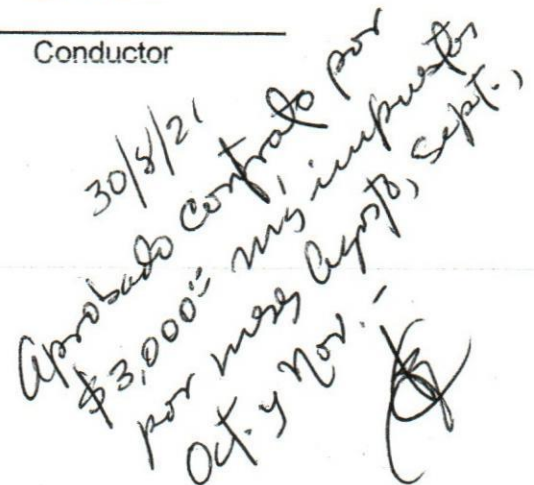 Conductor
30/8/21
Aprobado Contrato por
$3,000= más impuestos
por mes Agosto, Sept.,
Oct. y Nov. -